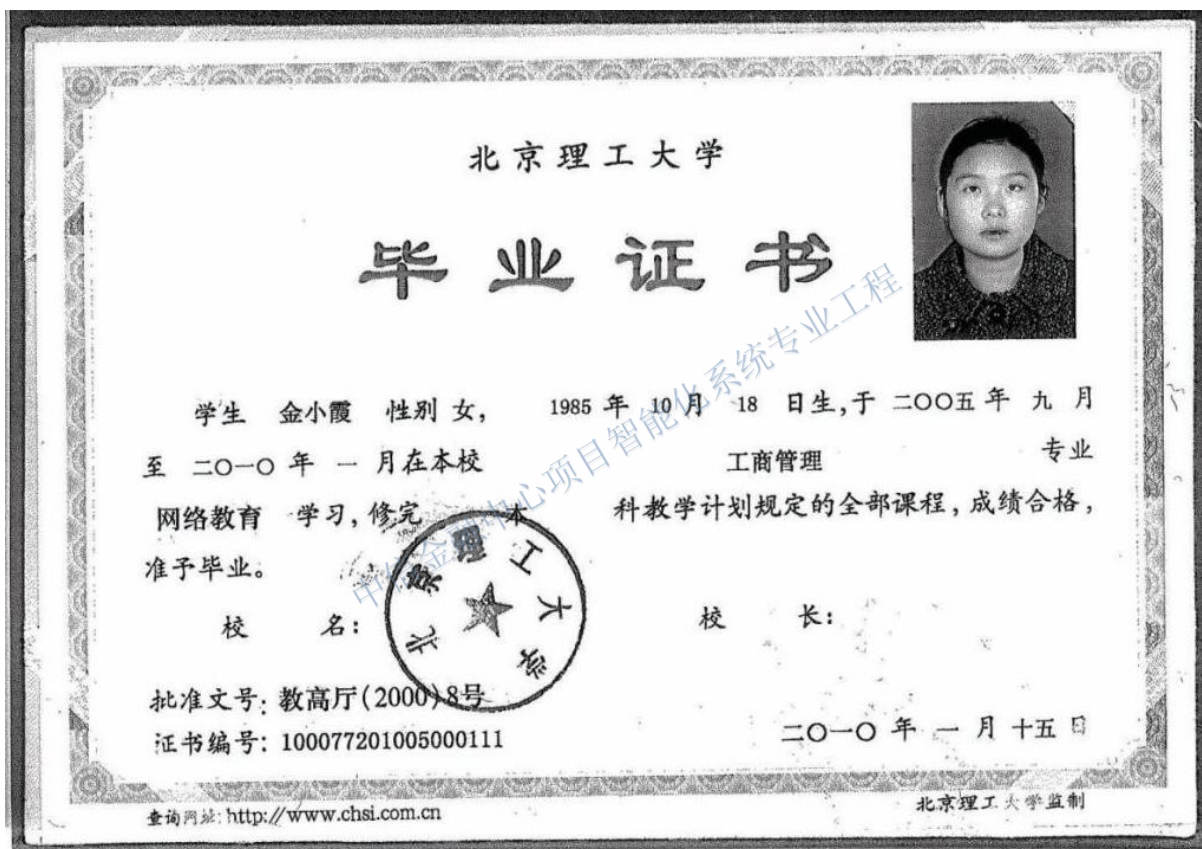 北京理工大学
毕业证书
学生 金小霞 性别 女, 1985 年 10 月 18 日生,于 二〇〇五 年 九 月
至 二〇一〇 年 一 月在本校 工商管理 专业
网络教育 学习,修完 本 科教学计划规定的全部课程,成绩合格,
准予毕业。
校 名: 校 长:
北京理工大学
批准文号: 教高厅(2000)8号
证书编号: 100077201005000111
二〇一〇 年 一 月 十五 日
查询网址: http://www.chsi.com.cn
北京理工大学监制
中心项目智能化系统专业工程